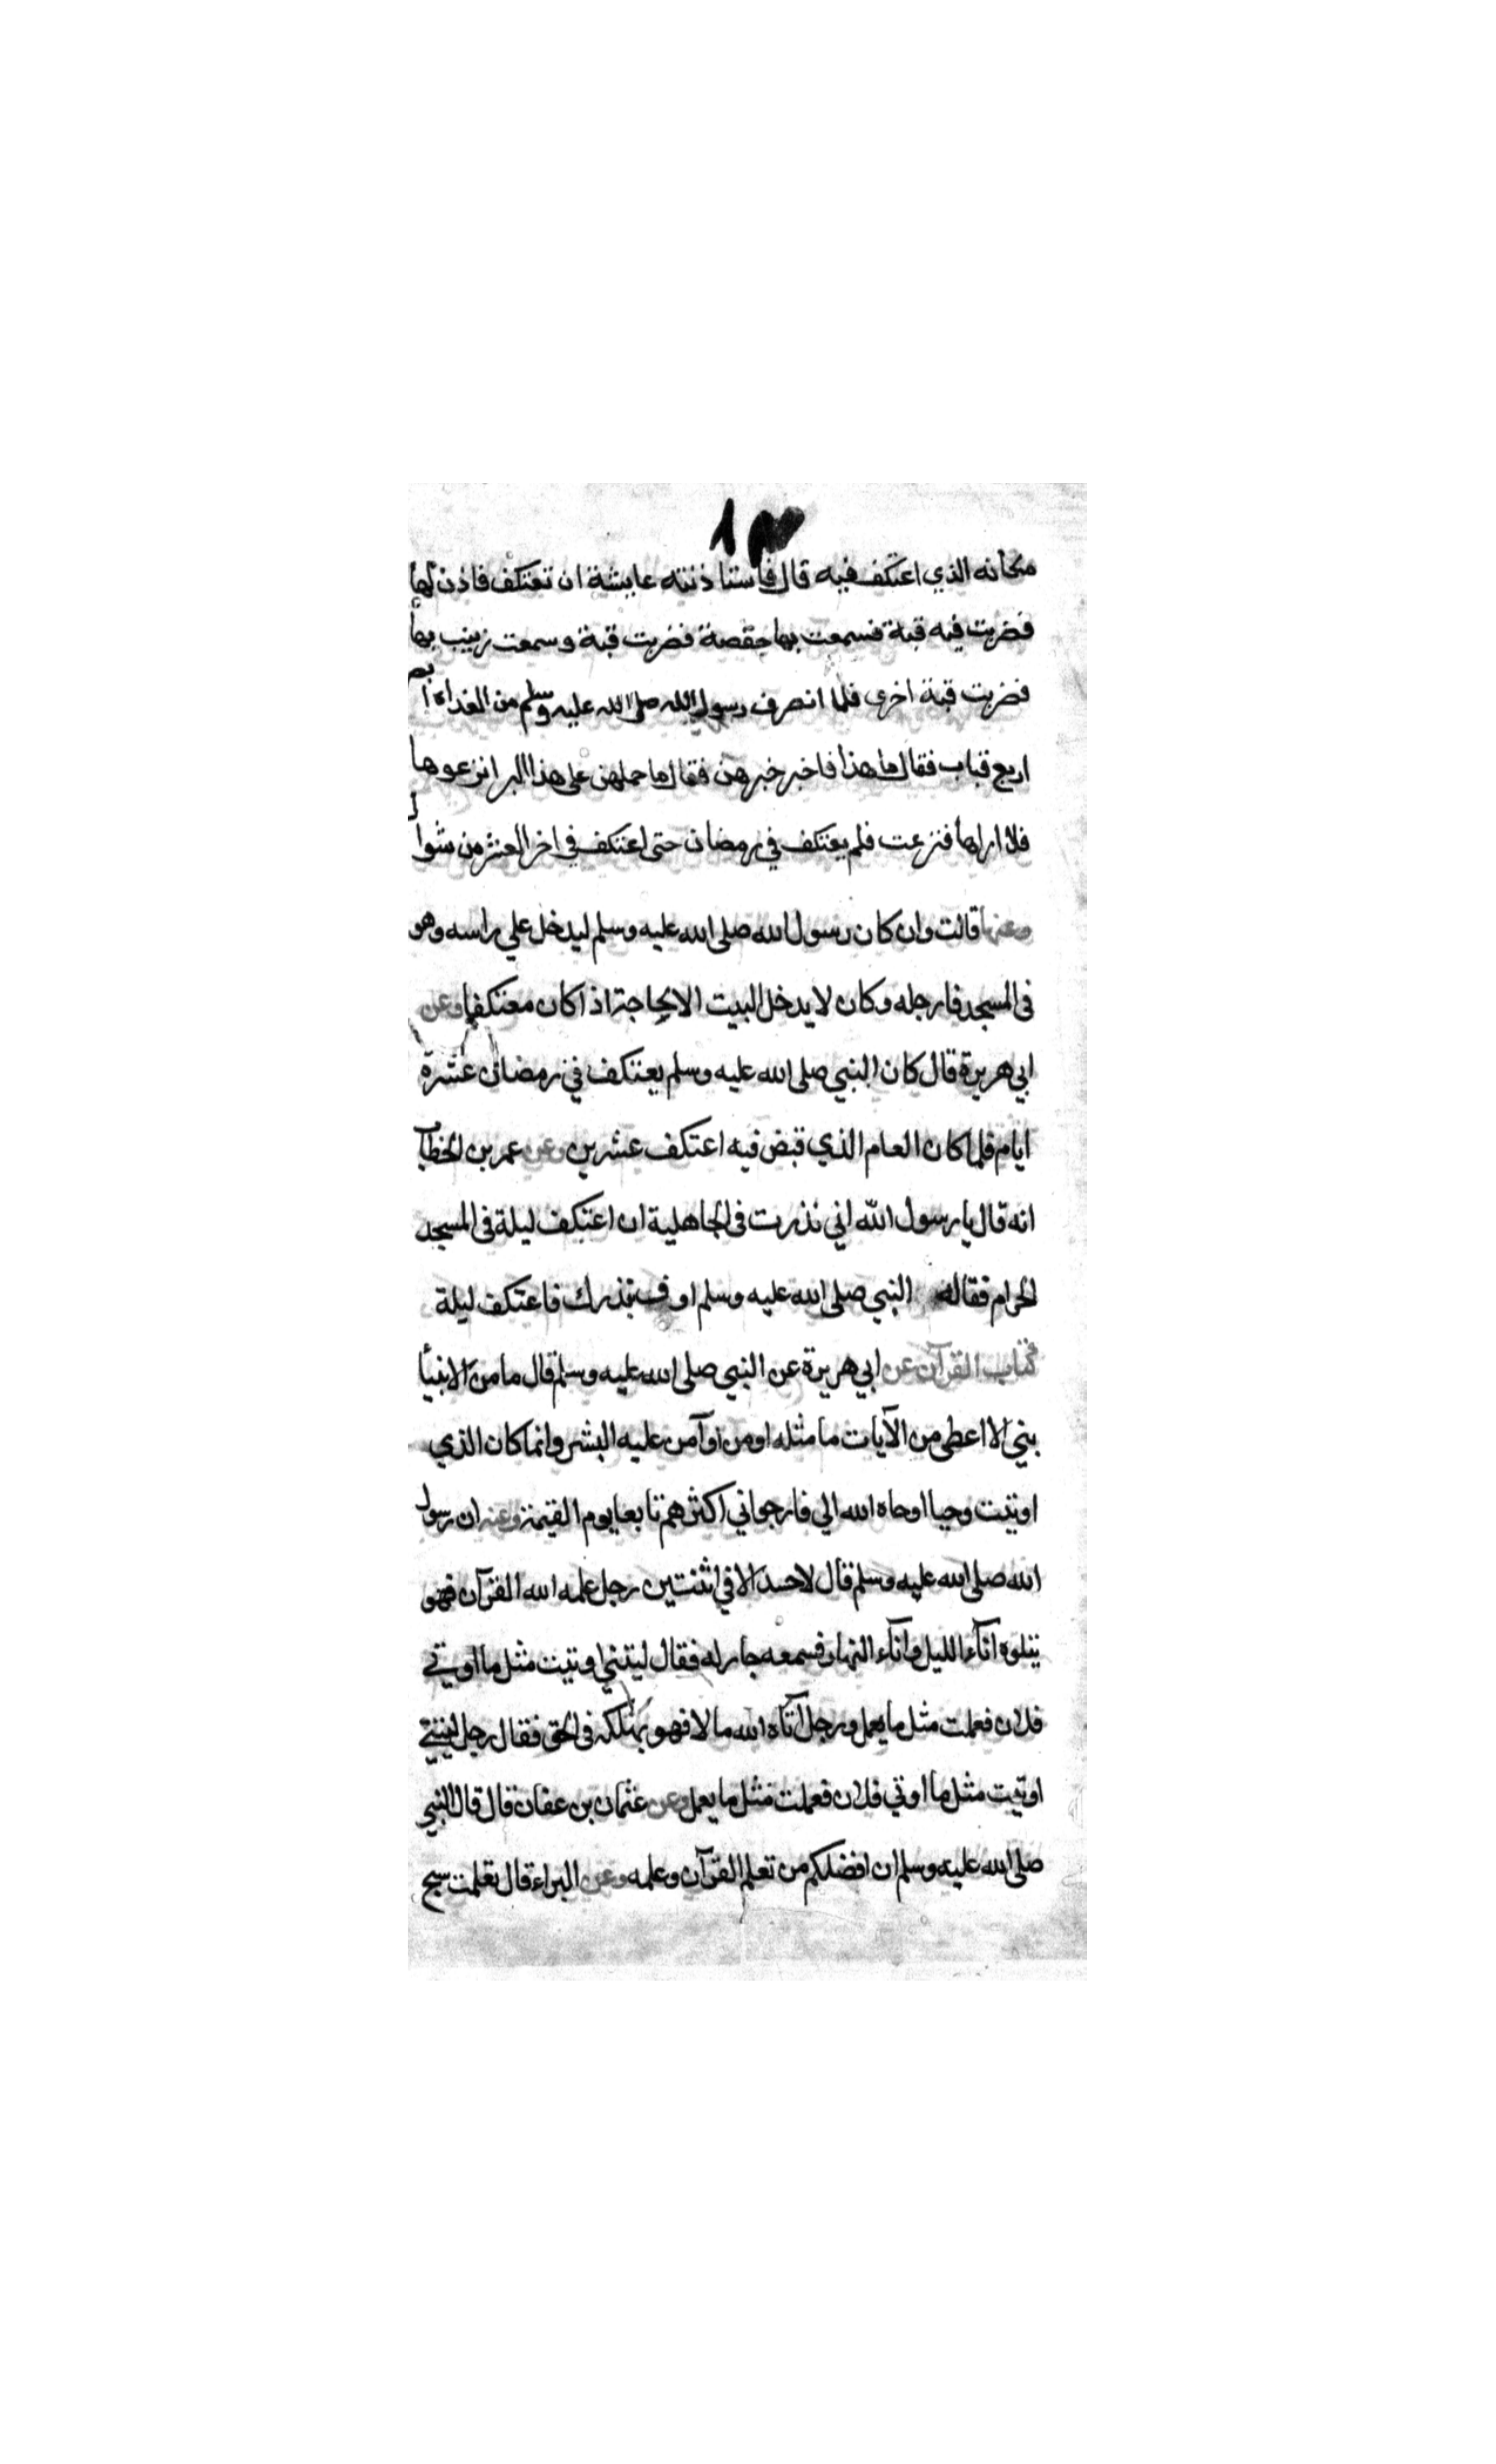 مكانه الذي اعتكف فيه قال فاستاذنته عايشة ان تعتكف فاذن لها
فضربت فيه قبة فسمعت بها حفصة فضربت قبة وسمعت زينب بها
فضربت قبة اخرى فلما انصرف رسول الله صلى الله عليه وسلم من الغداة ابصر
اربع قباب فقال ما هذا فاخبر خبرهن فقال ما حملهن على هذا البر انزعوها
فلا اراها فنزعت فلم يعتكف في رمضان حتى اعتكف في اخر العشر من شوال
وعنها قالت وان كان رسول الله صلى الله عليه وسلم ليدخل علي راسه وهو
في المسجد فارجله وكان لا يدخل البيت الا لحاجة اذا كان معتكفا وعن
ابي هريرة قال كان النبي صلى الله عليه وسلم يعتكف في رمضان عشرة
ايام فلما كان العام الذي قبض فيه اعتكف عشرين وعن عمر بن الخطاب
انه قال يا رسول الله اني نذرت في الجاهلية ان اعتكف ليلة في المسجد
الحرام فقال له النبي صلى الله عليه وسلم اوف بنذرك فاعتكف ليلة
كتاب القرآن عن ابي هريرة عن النبي صلى الله عليه وسلم قال ما من الانبيأ
نبي الا اعطي من الآيات ما مثله اومن او آمن عليه البشر وانما كان الذي
اوتيت وحيا اوحاه الله الي فارجو اني اكثرهم تابعا يوم القيمة وعنه ان رسول
الله صلى الله عليه وسلم قال لا حسد الا في اثنتين رجل علمه الله القرآن فهو
يتلوه آناء الليل وآناء النهار فسمعه جار له فقال ليتني اوتيت مثل ما اوتي
فلان فعملت مثل ما يعمل ورجل آتاه الله مالا فهو يهلكه في الحق فقال رجل ليتني
اوتيت مثل ما اوتي فلان فعملت مثل ما يعمل وعن عثمان بن عفان قال قال النبي
صلى الله عليه وسلم ان افضلكم من تعلم القرآن وعلمه وعن البراء قال تعلمت سبح